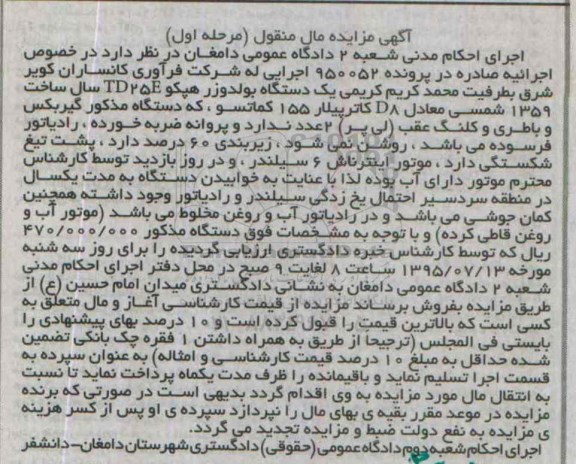 آگهی مزایده مال منقول (مرحله اول)
اجرای احکام مدنی شعبه ۲ دادگاه عمومی دامغان در نظر دارد در خصوص
اجرائیه صادره در پرونده ۹۵۰۰۵۲ اجرایی له شرکت فرآوری کانساران کویر
شرق بطرفیت محمد کریم کریمی یک دستگاه بولدوزر هپکو TD25E سال ساخت
۱۳۵۹ شمسی معادل D8 کاترپیلار ۱۵۵ کماتسو ، که دستگاه مذکور گیربکس
و باطری و کلنگ عقب (لی پر) ۲عدد ندارد و پروانه ضربه خورده ، رادیاتور
فرسوده می باشد ، روشن نمی شود ، زیربندی ۶۰ درصد دارد ، پشت تیغ
شکستگی دارد ، موتور اینترناش ۶ سیلندر ، و در روز بازدید توسط کارشناس
محترم موتور دارای آب بوده لذا با عنایت به خوابیدن دستگاه به مدت یکسال
در منطقه سردسیر احتمال یخ زدگی سیلندر و رادیاتور وجود داشته همچنین
کمان جوشی می باشد و در رادیاتور آب و روغن مخلوط می باشد (موتور آب و
روغن قاطی کرده) و با توجه به مشخصات فوق دستگاه مذکور ۴۷۰/۰۰۰/۰۰۰
ریال که توسط کارشناس خبره دادگستری ارزیابی گردیده را برای روز سه شنبه
مورخه ۱۳۹۵/۰۷/۱۳ ساعت ۸ لغایت ۹ صبح در محل دفتر اجرای احکام مدنی
شعبه ۲ دادگاه عمومی دامغان به نشانی دادگستری میدان امام حسین (ع) از
طریق مزایده بفروش برساند مزایده از قیمت کارشناسی آغاز و مال متعلق به
کسی است که بالاترین قیمت را قبول کرده است و ۱۰ درصد بهای پیشنهادی را
بایستی فی المجلس (ترجیحا از طریق به همراه داشتن ۱ فقره چک بانکی تضمین
شده حداقل به مبلغ ۱۰ درصد قیمت کارشناسی و امثاله) به عنوان سپرده به
قسمت اجرا تسلیم نماید و باقیمانده را ظرف مدت یکماه پرداخت نماید تا نسبت
به انتقال مال مورد مزایده به وی اقدام گردد بدیهی است در صورتی که برنده
مزایده در موعد مقرر بقیه ی بهای مال را نپردازد سپرده ی او پس از کسر هزینه
ی مزایده به نفع دولت ضبط و مزایده تجدید می گردد.
اجرای احکام شعبه دوم دادگاه عمومی (حقوقی) دادگستری شهرستان دامغان-دانشفر